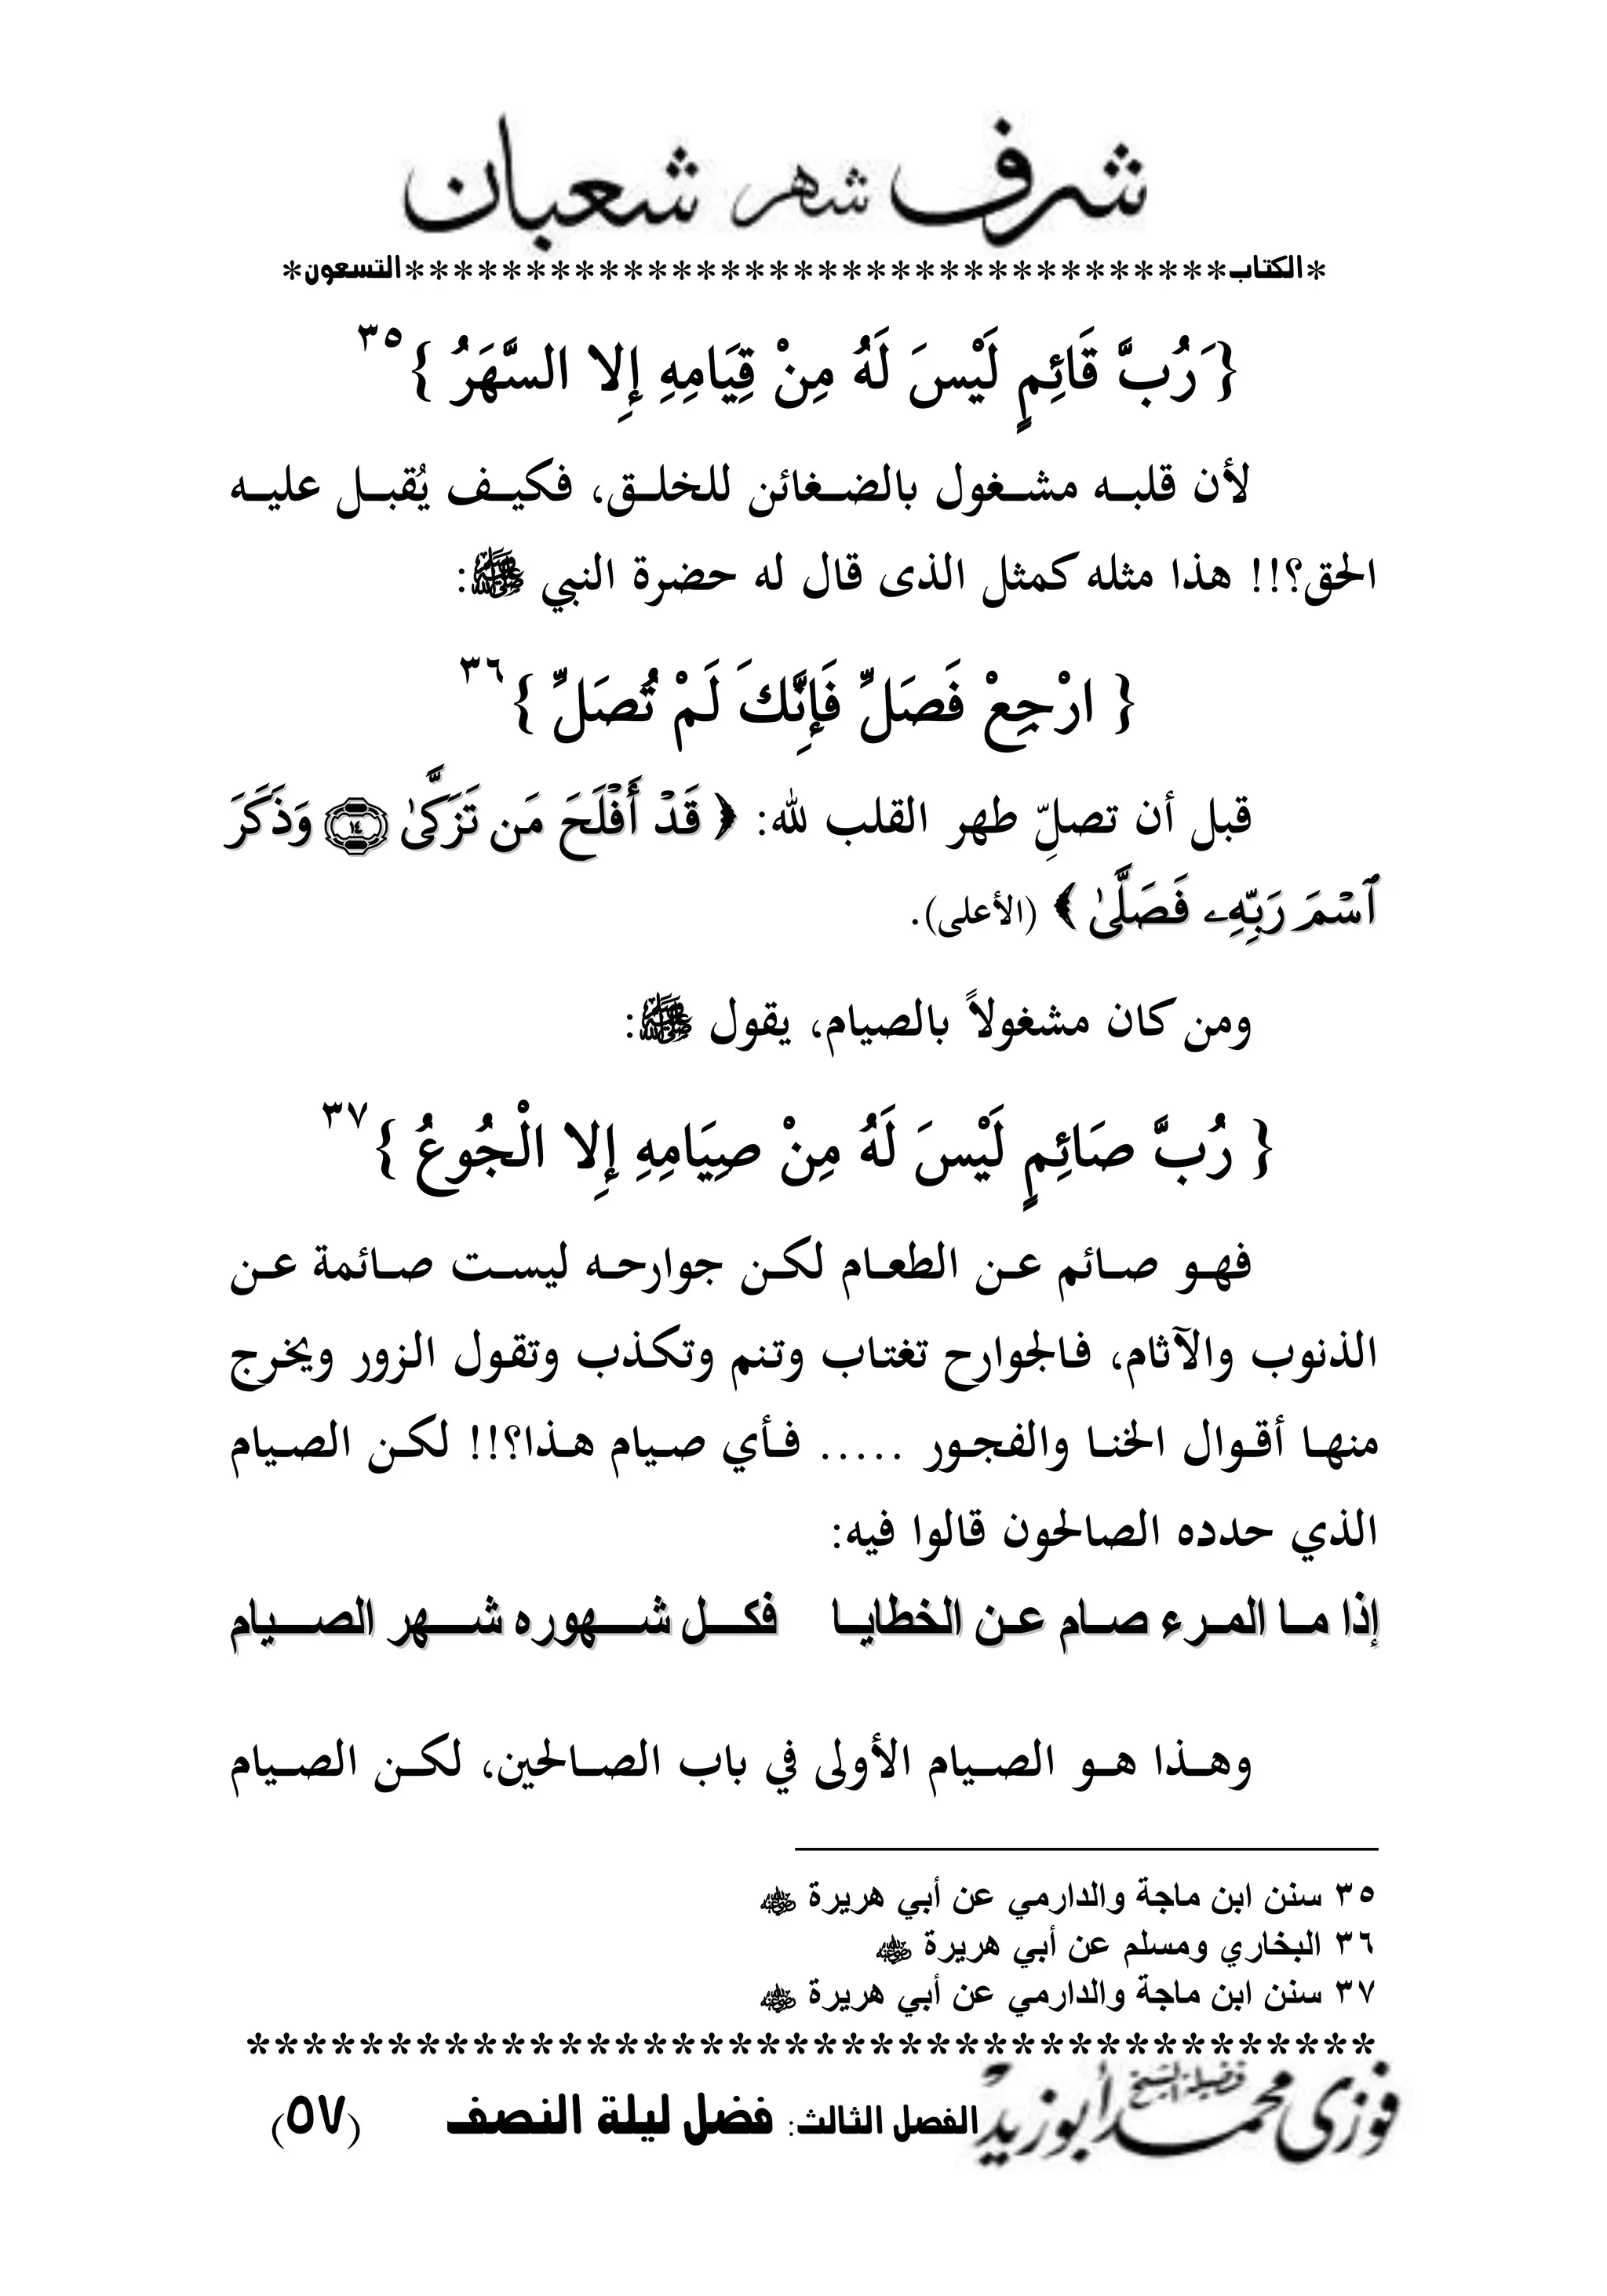 شرف شهر شعبان
*الكتاب**********************************التسعون*
{ َرُبَّ قَائِمٍ لَيْسَ لَهُ مِنْ قِيَامِهِ إِلا السَّهَرُ }٣٥
لأن قلبه مشغول بالضغائن للخلق، فكيف يُقبل عليه
الحق؟!! هذا مثله كمثل الذى قال له حضرة النبي ﷺ:
{ ارْجِعْ فَصَلِّ فَإِنَّكَ لَمْ تُصَلِّ }٣٦
قبل أن تصلِّ طهر القلب لله: ﴿ قَدْ أَفْلَحَ مَن تَزَكَّىٰ ١٤ وَذَكَرَ
ٱسْمَ رَبِّهِۦ فَصَلَّىٰ ﴾ (الأعلى).
ومن كان مشغولاً بالصيام، يقول ﷺ:
{ رُبَّ صَائِمٍ لَيْسَ لَهُ مِنْ صِيَامِهِ إِلا الْجُوعُ }٣٧
فهو صائم عن الطعام لكن جوارحه ليست صائمة عن
الذنوب والآثام، فالجوارح تغتاب وتنم وتكذب وتقول الزور ويخرج
منها أقوال الخنا والفجور ..... فأي صيام هذا؟!! لكن الصيام
الذي حدده الصالحون قالوا فيه:
إذا ما المرء صام عن الخطايا فكل شهوره شهر الصيام
وهذا هو الصيام الأولى في باب الصالحين، لكن الصيام
٣٥ سنن ابن ماجة والدارمي عن أبي هريرة ﷺ
٣٦ البخاري ومسلم عن أبي هريرة ﷺ
٣٧ سنن ابن ماجة والدارمي عن أبي هريرة ﷺ
****************************************
فضيلة الشيخ فوزى محمد أبوزيد الفصل الثالث: فضل ليلة النصف (٥٧)